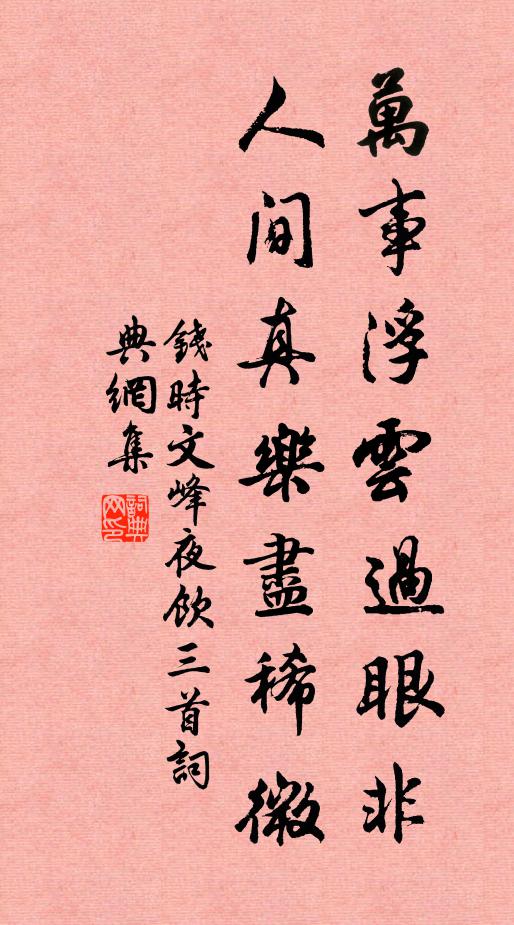 萬事浮雲過眼非
人間真樂盡稀微
錢時文峰夜飲三首詞
典網集
詞典网印